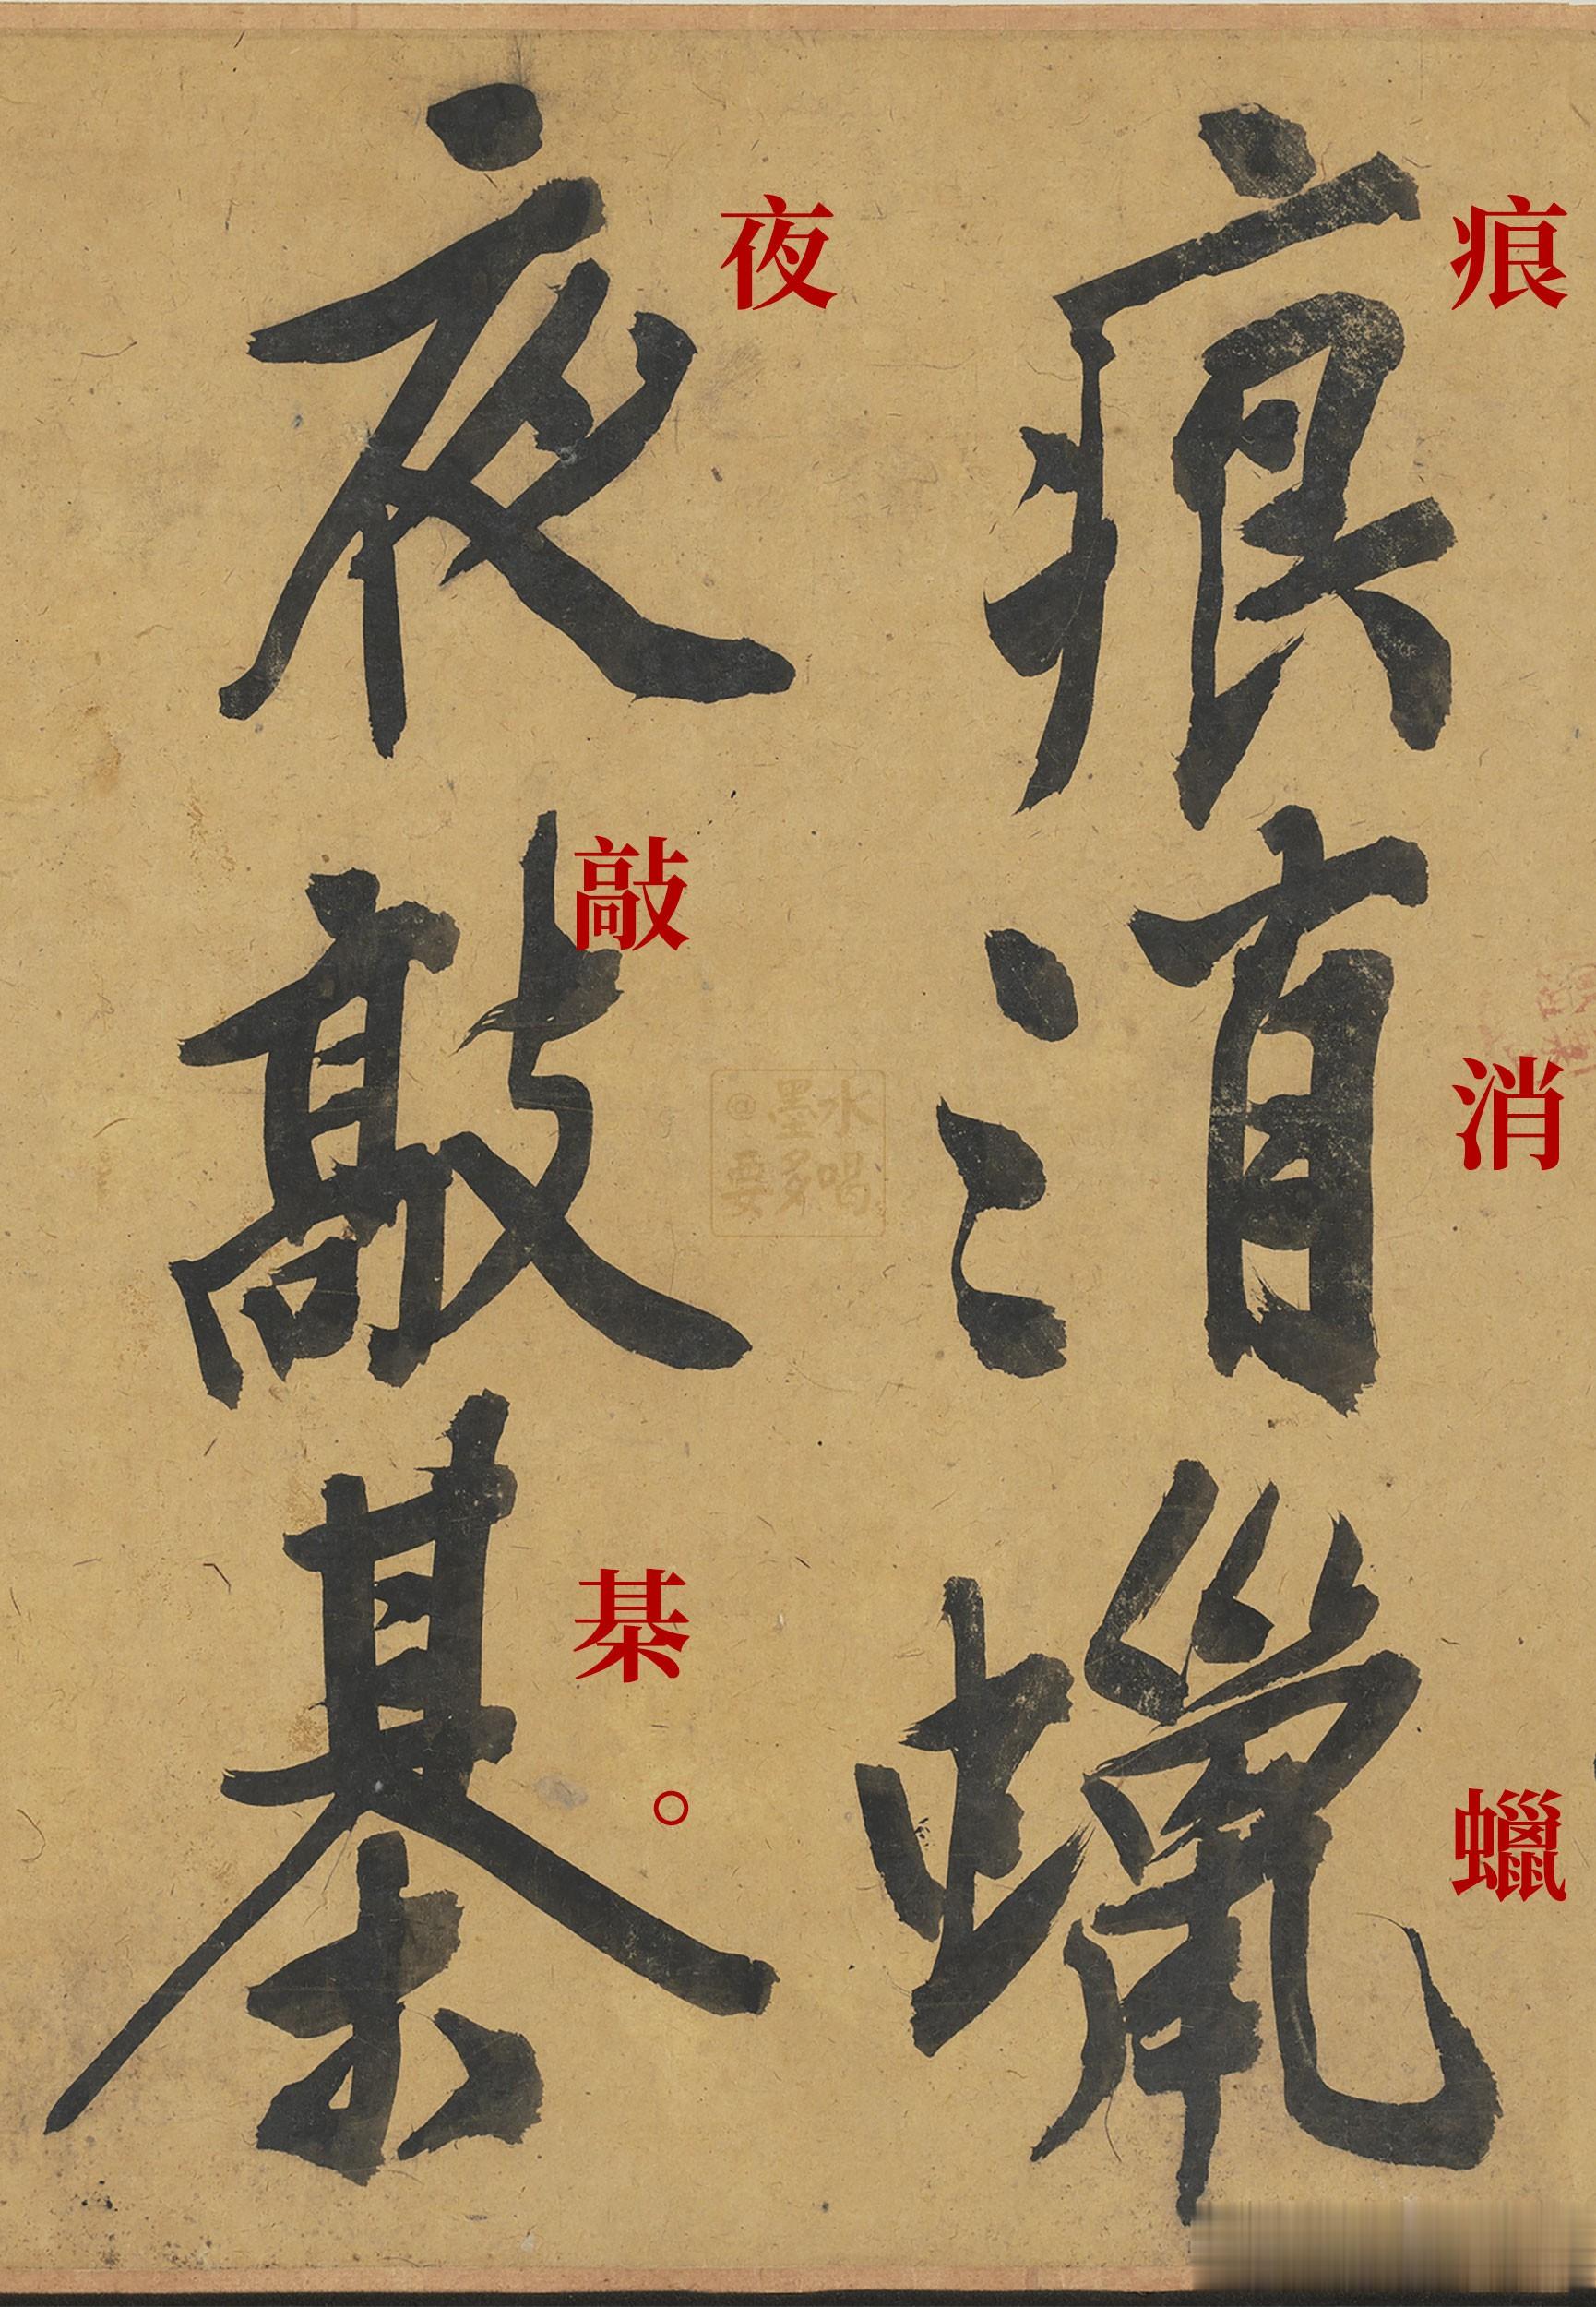 痕消蠟
夜敲棊。
痕
消
蠟
夜
敲
棊
。
@墨水
要多喝